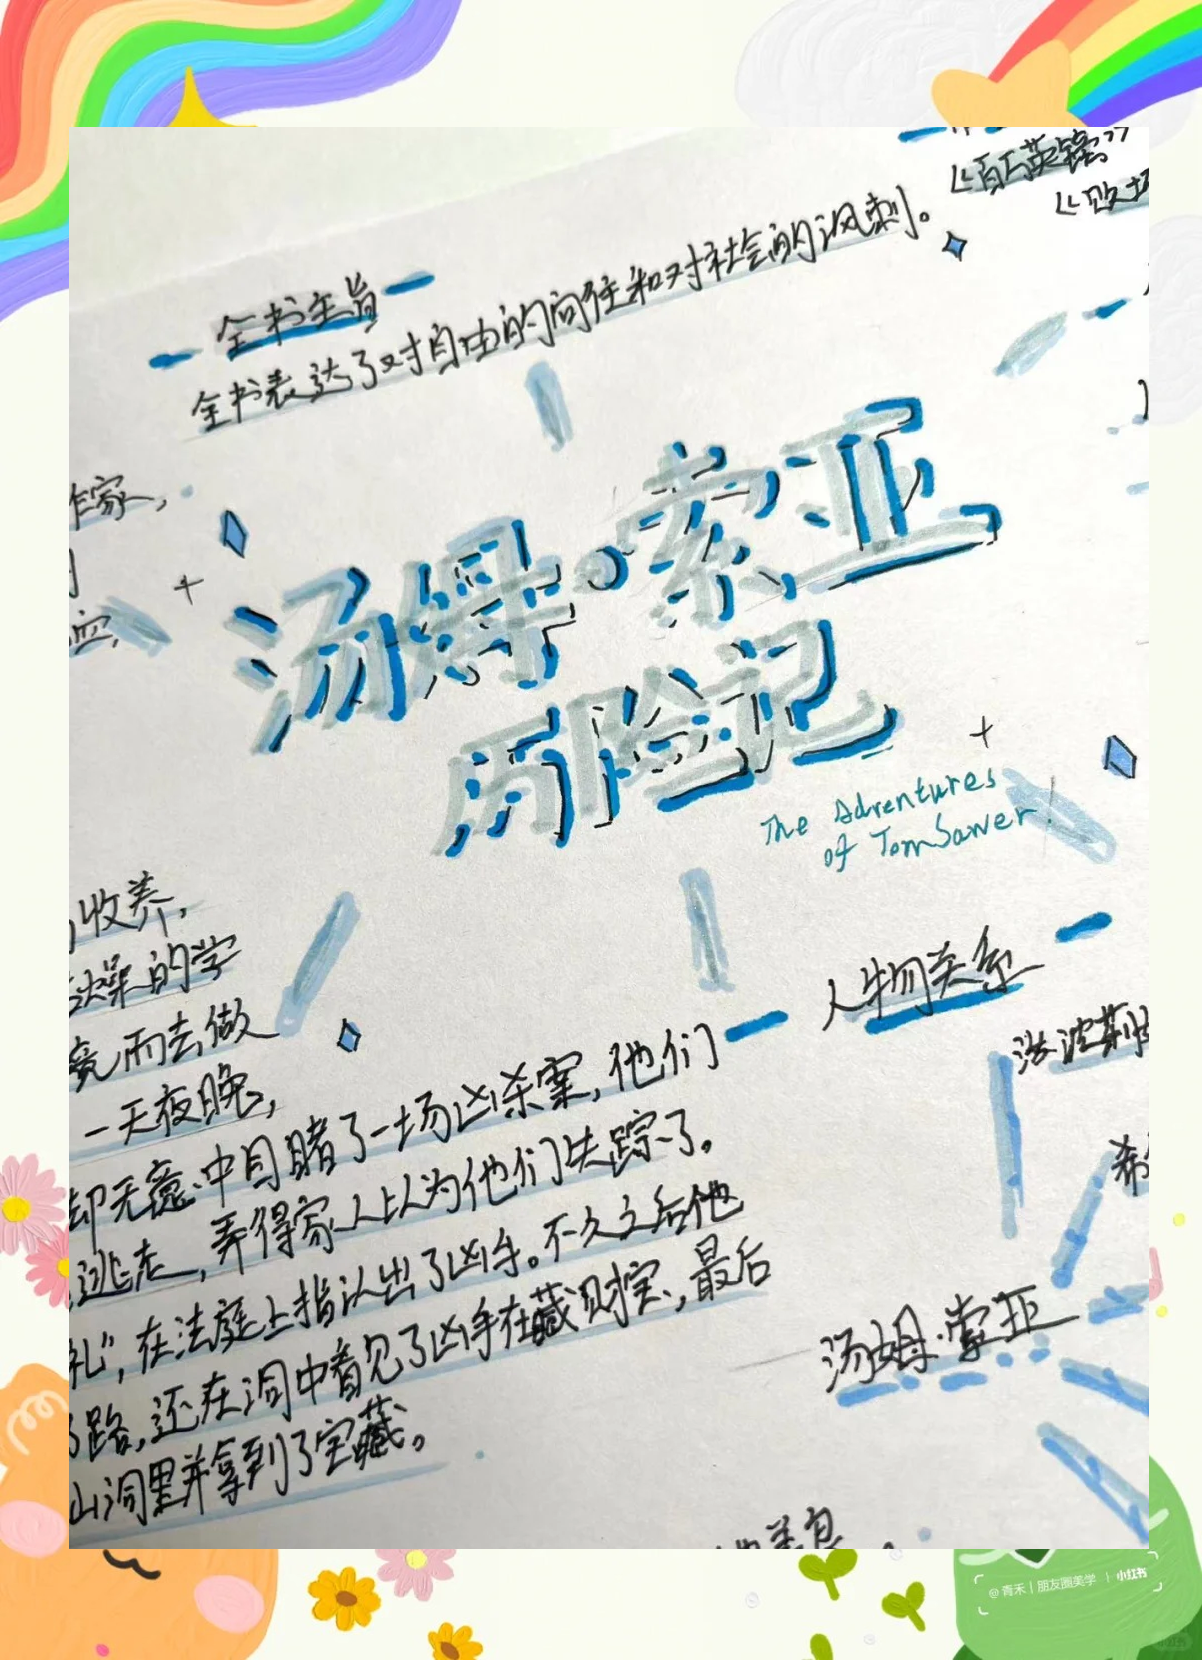 《百万英镑》
《败坏
全书主旨
全书表达了对自由的向往和对社会的讽刺。
作家,
汤姆·索亚
历险记
The Adventures
of Tom Sawer!
收养,
燥的学
竟而去做
一天夜晚,
却无意中目睹了一场凶杀案,他们
逃走,弄得家人以为他们失踪了。
礼”,在法庭上指认出了凶手。不久之后他
路,还在洞中看见了凶手在藏财宝,最后
山洞里并拿到了宝藏。
人物关系
法
波莉
希
汤姆·索亚
@青禾|朋友圈美学 | 小红书